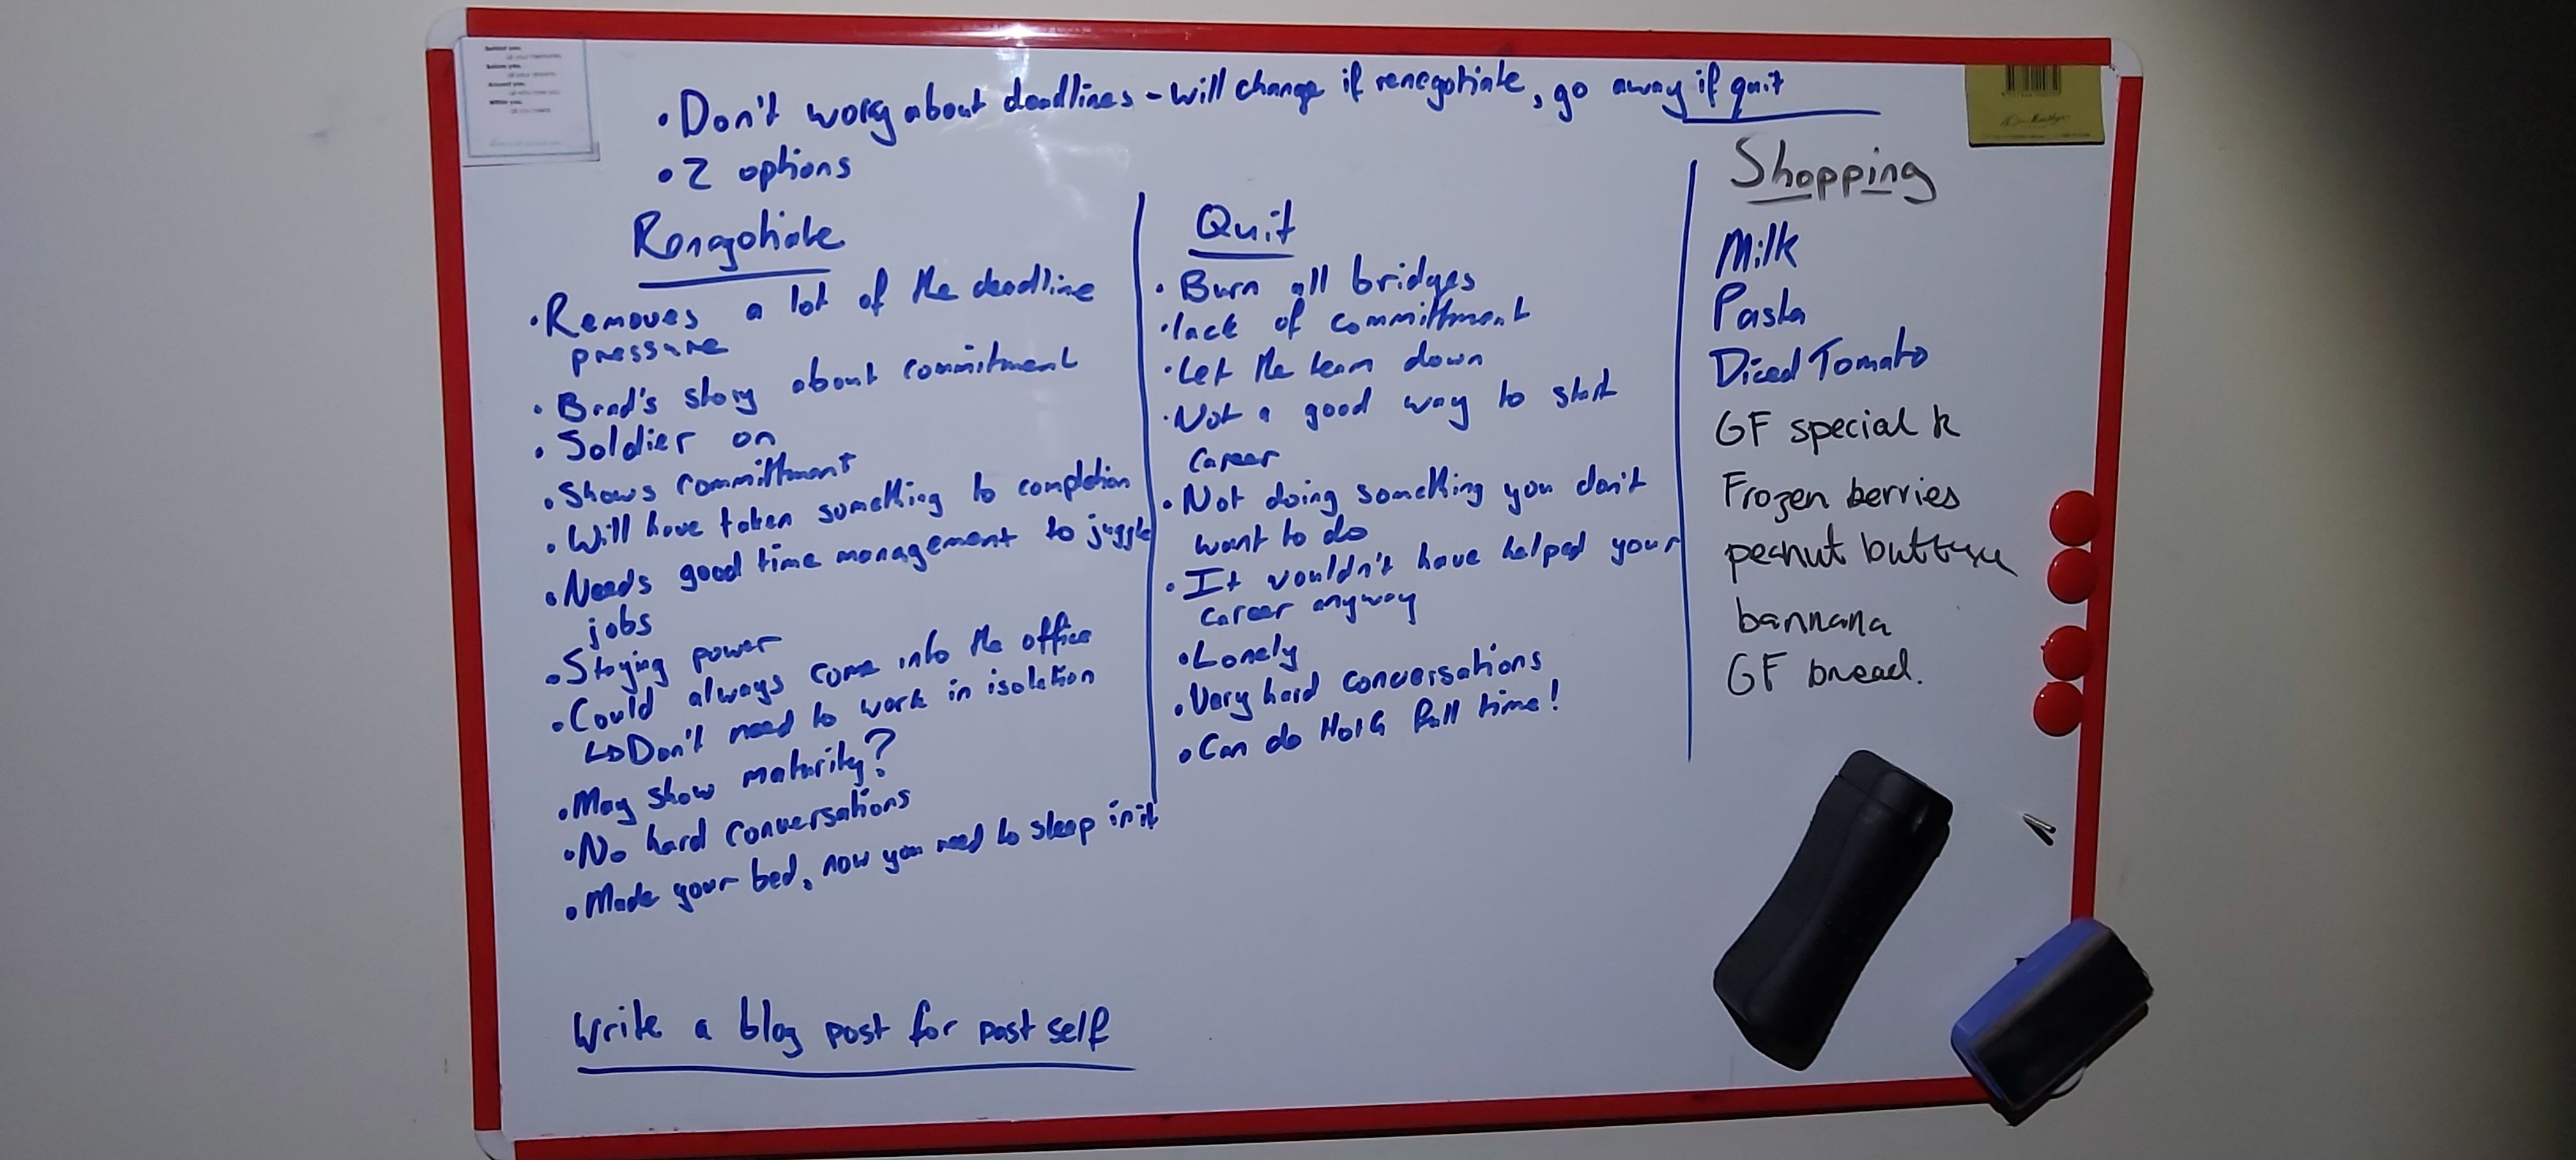 Behind you,
all your memories
Before you,
all your dreams
Around you,
all who love you
Within you,
all you need
• Don't worry about deadlines - will change if renegotiate, go away if quit
• 2 options
Renegotiate
• Removes a lot of the deadline
pressure
• Brad's story about commitment
• Soldier on
• Shows committment
• Will have taken something to completion
• Needs good time management to juggle
jobs
• Staying power
• Could always come into the office
↳ Don't need to work in isolation
• May show maturity?
• No hard conversations
• Made your bed, now you need to sleep in it
Quit
• Burn all bridges
• lack of committment
• Let the team down
• Not a good way to start
career
• Not doing something you don't
want to do
• It wouldn't have helped your
career anyway
• Lonely
• Very hard conversations
• Can do full time!
Shopping
Milk
Pasta
Diced Tomato
GF special k
Frozen berries
peanut
bannana
GF bread.
Write a blog post for past self